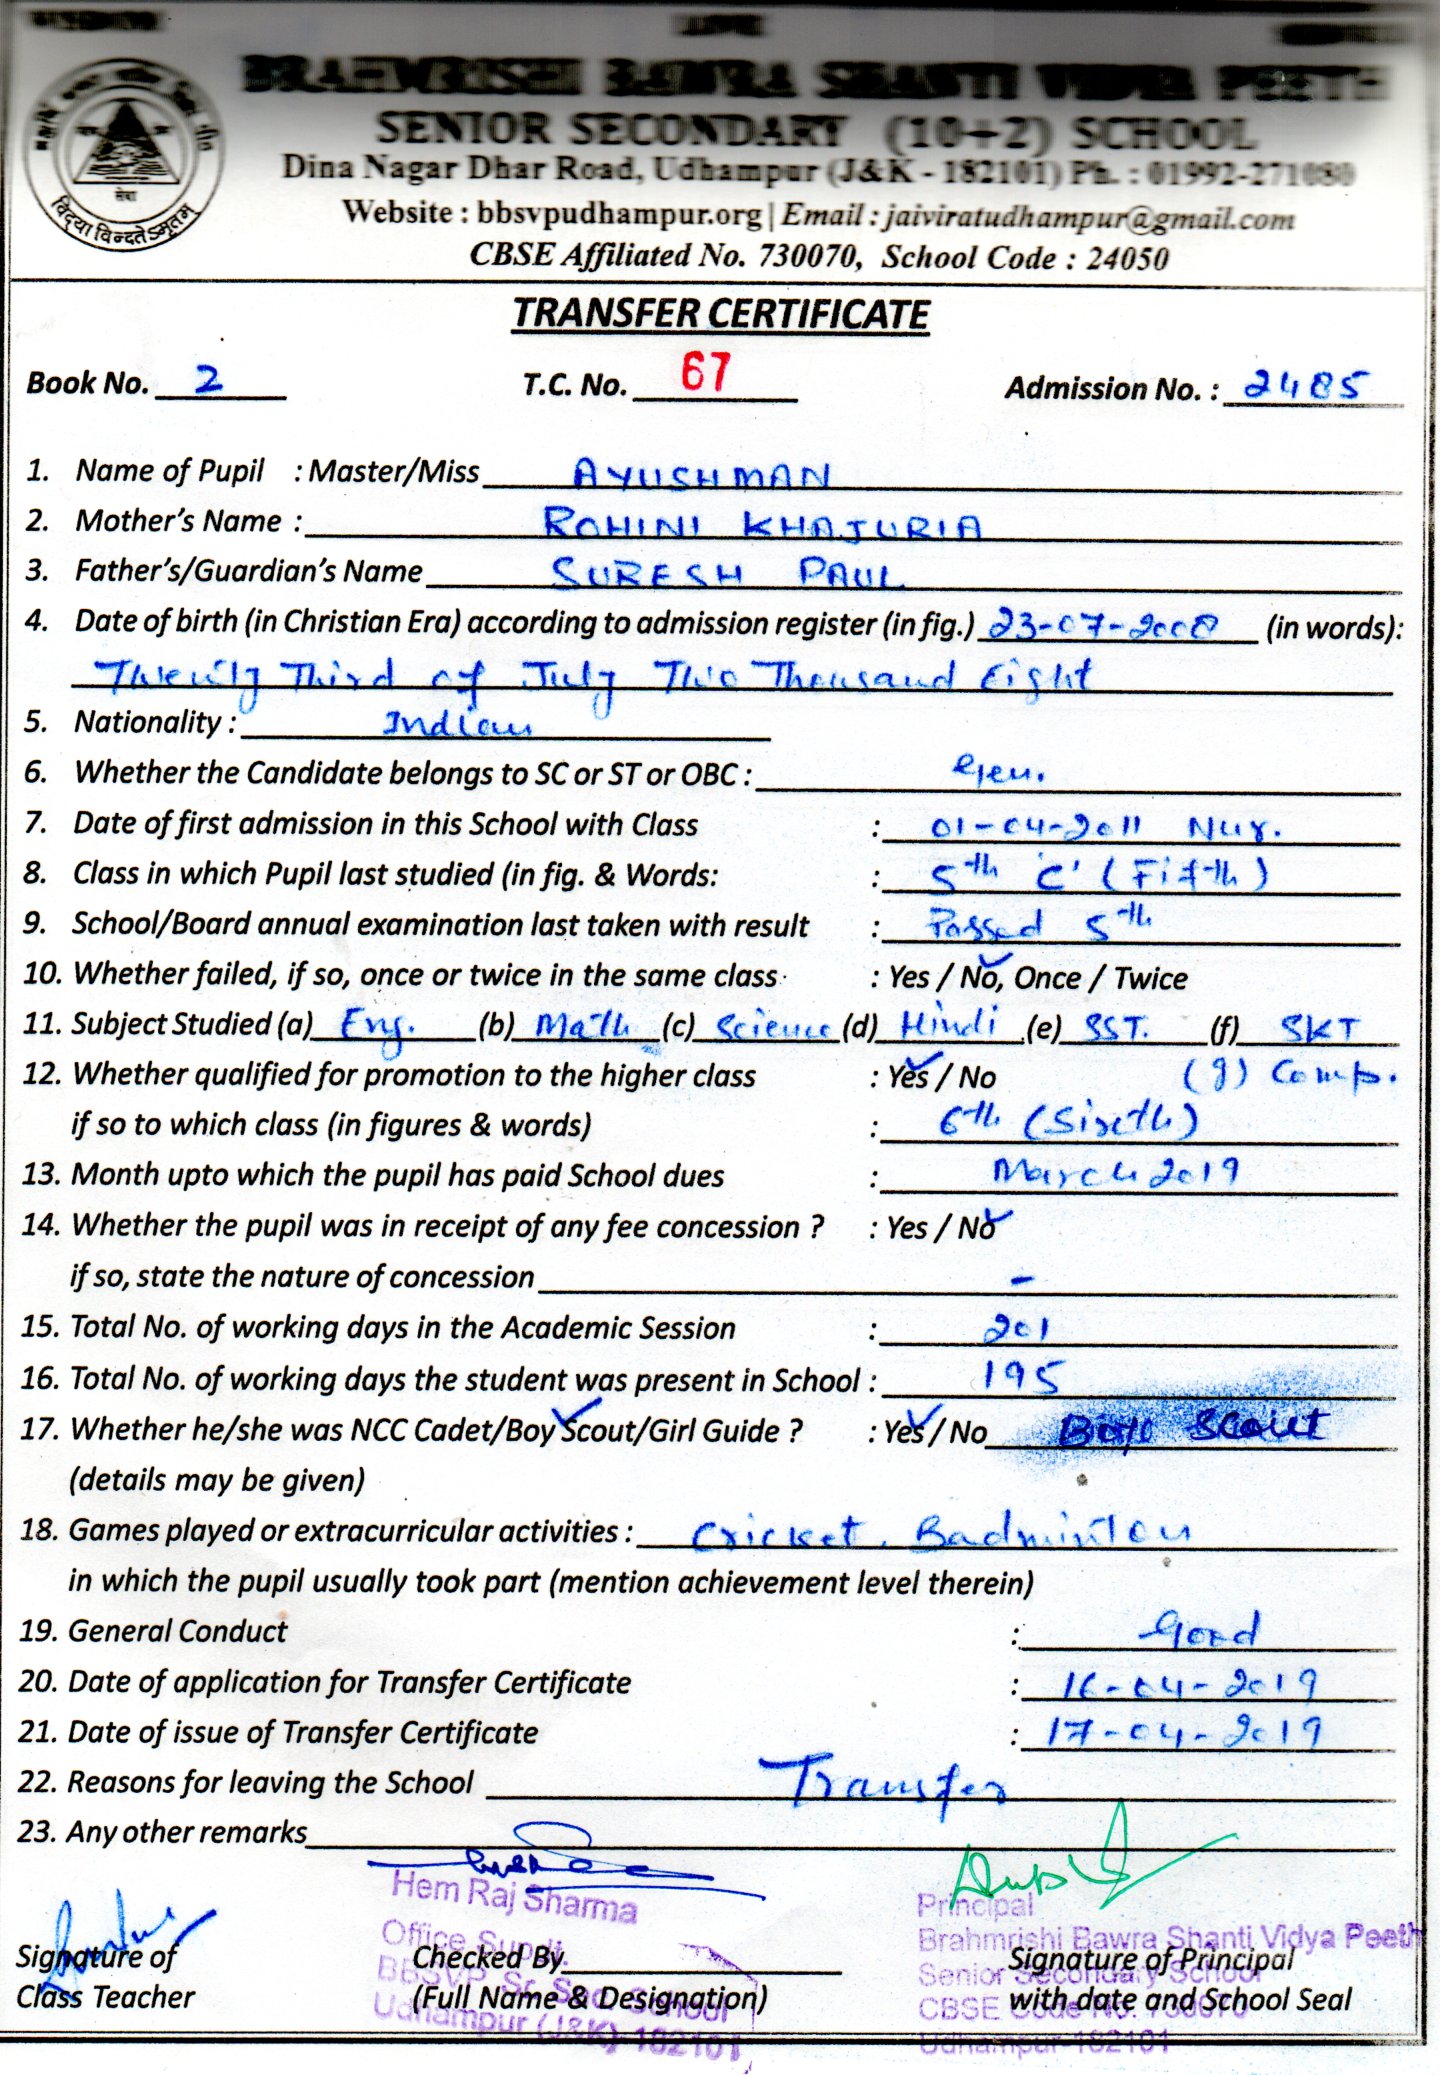 BRAHMRISHI BAWRA SHANTI VIDYA PEETH
SENIOR SECONDARY (10+2) SCHOOL
Dina Nagar Dhar Road, Udhampur (J&K - 182101) Ph. : 01992-271080
Website : bbsvpudhampur.org | Email : jaiviratudhampur@gmail.com
CBSE Affiliated No. 730070, School Code : 24050
सेवा
विद्या विन्दतेऽमृतम्
TRANSFER CERTIFICATE
Book No. 2 T.C. No. 67 Admission No. : 2485
1. Name of Pupil : Master/Miss AYUSHMAN
2. Mother's Name : ROHINI KHAJURIA
3. Father's/Guardian's Name SURESH PAUL
4. Date of birth (in Christian Era) according to admission register (in fig.) 23-07-2008 (in words):
Twenty Third of July Two Thousand Eight
5. Nationality : Indian
6. Whether the Candidate belongs to SC or ST or OBC : Gen.
7. Date of first admission in this School with Class : 01-04-2011 Nur.
8. Class in which Pupil last studied (in fig. & Words: : 5th 'C' (Fifth)
9. School/Board annual examination last taken with result : Passed 5th
10. Whether failed, if so, once or twice in the same class : Yes / No, Once / Twice
11. Subject Studied (a) Eng. (b) Math (c) Science (d) Hindi (e) SST. (f) SKT
12. Whether qualified for promotion to the higher class : Yes / No (g) Comp.
if so to which class (in figures & words) : 6th (Sixth)
13. Month upto which the pupil has paid School dues : March 2019
14. Whether the pupil was in receipt of any fee concession ? : Yes / No
if so, state the nature of concession -
15. Total No. of working days in the Academic Session : 201
16. Total No. of working days the student was present in School : 195
17. Whether he/she was NCC Cadet/Boy Scout/Girl Guide ? : Yes / No Boys Scout
(details may be given)
18. Games played or extracurricular activities : Cricket, Badminton
in which the pupil usually took part (mention achievement level therein)
19. General Conduct : Good
20. Date of application for Transfer Certificate : 16-04-2019
21. Date of issue of Transfer Certificate : 17-04-2019
22. Reasons for leaving the School Transfer
23. Any other remarks
Hem Raj Sharma
Office Supdt.
BBSVP Sr. Sec. School
Udhampur (J&K)-182101
Principal
Brahmrishi Bawra Shanti Vidya Peeth
Senior Secondary School
CBSE Code No. 730070
Udhampur-182101
Signature of
Class Teacher
Checked By
(Full Name & Designation)
Signature of Principal
with date and School Seal